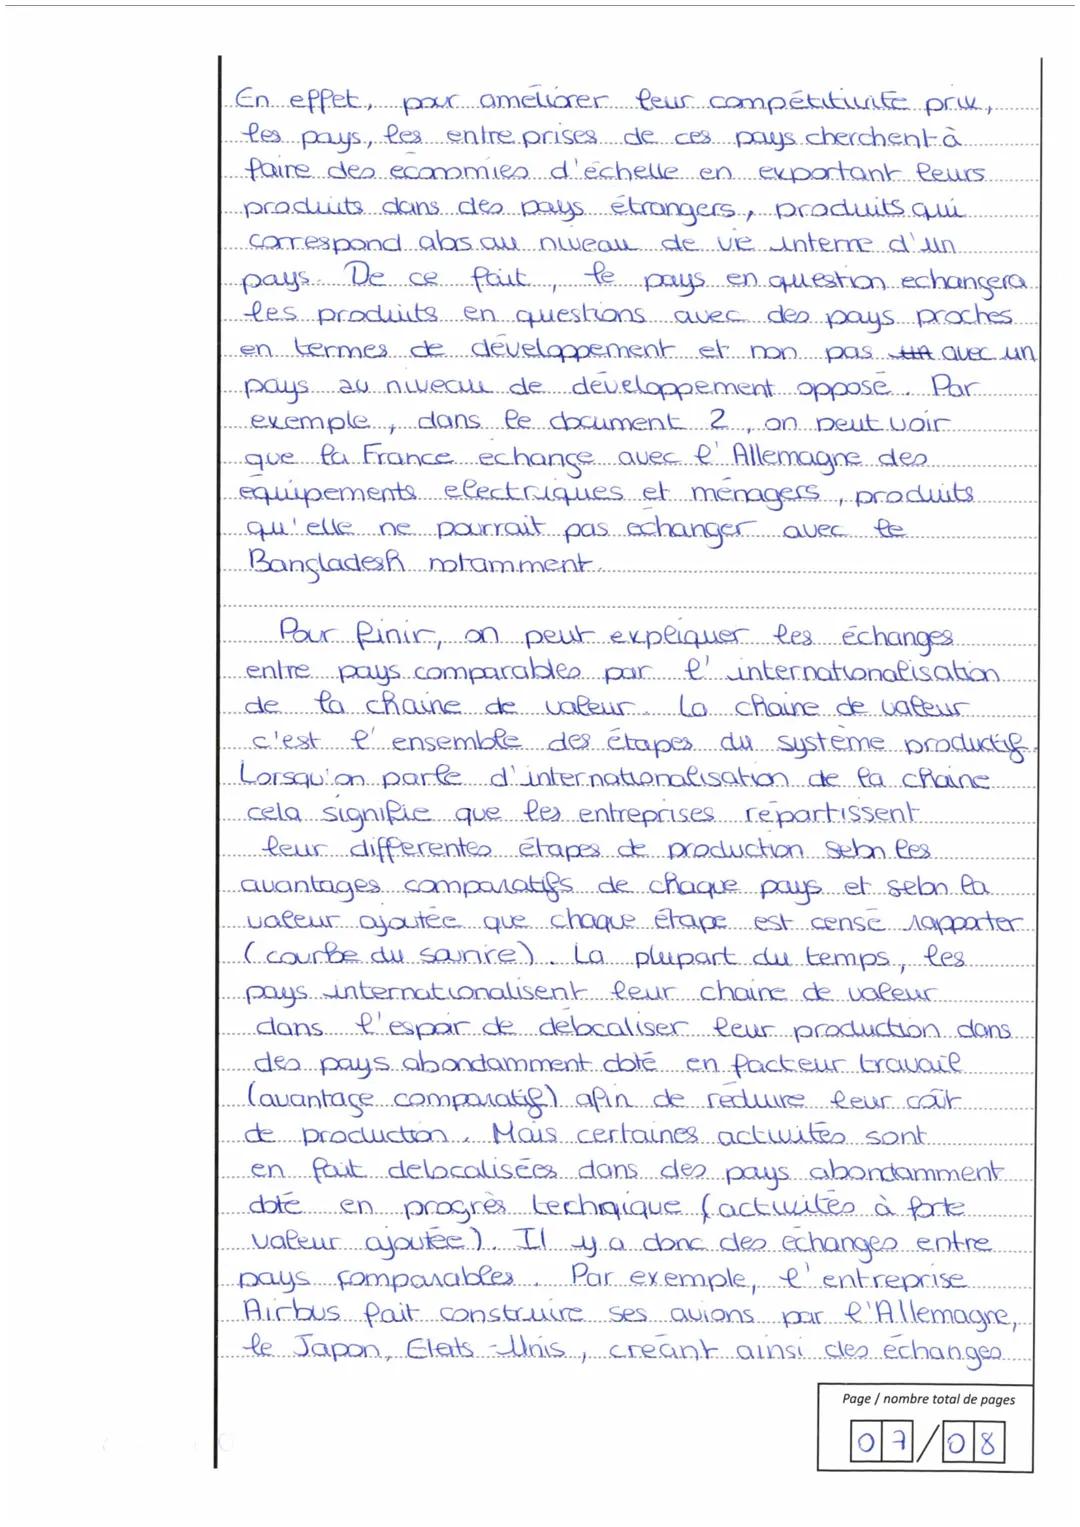 En effet, pour améliorer leur compétitivité prix,
les pays, les entreprises de ces pays cherchent à
faire des économies d'échelle en exportant leurs
produits dans des pays étrangers, produits qui
correspond abs au niveau de vie interne d'un
pays. De ce fait, le pays en question echangera
les produits en questions avec des pays proches
en termes de développement et non pas avec un
pays au niveau de développement opposé. Par
exemple, dans le document 2, on peut voir
que la France echange avec l'Allemagne des
équipements electriques et ménagers, produits
qu'elle ne pourrait pas echanger avec le
Bangladesh notamment.
Pour finir, on peut expliquer les échanges
entre pays comparables par l'internationalisation
de la chaine de valeur. La chaine de valeur
c'est l'ensemble des étapes du système productif.
Lorsqu'on parle d'internationalisation de la chaine
cela signifie que les entreprises répartissent
leur differentes étapes de production selon les
avantages comparatifs de chaque pays et selon la
valeur ajoutée que chaque étape est censé rapporter
(courbe du sourire). La plupart du temps, les
pays internationalisent leur chaine de valeur
dans l'espoir de délocaliser leur production dans
des pays abondamment doté en facteur travail
(avantage comparatif) afin de réduire leur coût
de production. Mais certaines activités sont
en fait delocalisées dans des pays abondamment
doté en progrès technique (activités à forte
valeur ajoutée). Il y a donc des échanges entre
pays comparables. Par exemple, l'entreprise
Airbus fait construire ses avions par l'Allemagne,
le Japon, Etats-Unis, créant ainsi des échanges
Page / nombre total de pages
07/08